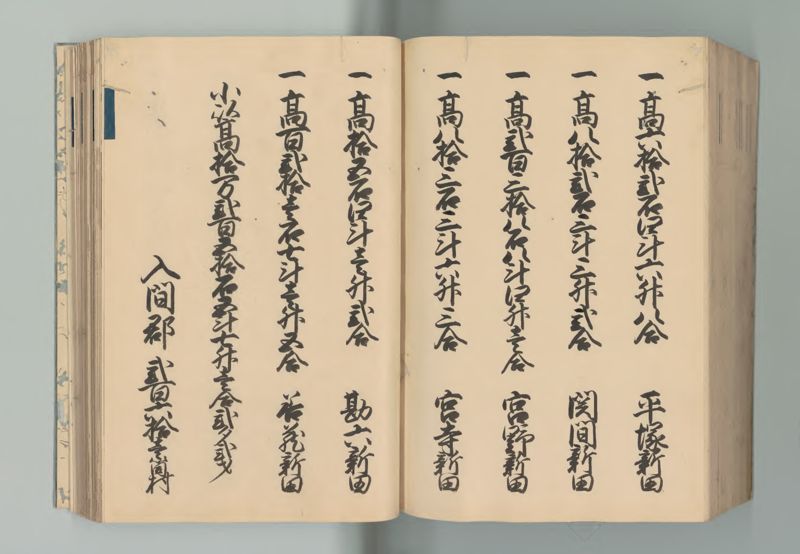 一 高六拾弐石四斗六升八合 平塚新田
一 高八拾弐石三斗三升弐合 関間新田
一 高弐百三拾八石八斗四升壱合 宮野新田
一 高八拾三石三斗六升三合 宮寺新田
一 高拾五石四斗壱升弐合 勘六新田
一 高百弐拾壱石七斗壱升五合 新田
小以高拾万弐百五拾石五斗七升壱合弐夕弐才
入間郡 弐百六拾壱箇村